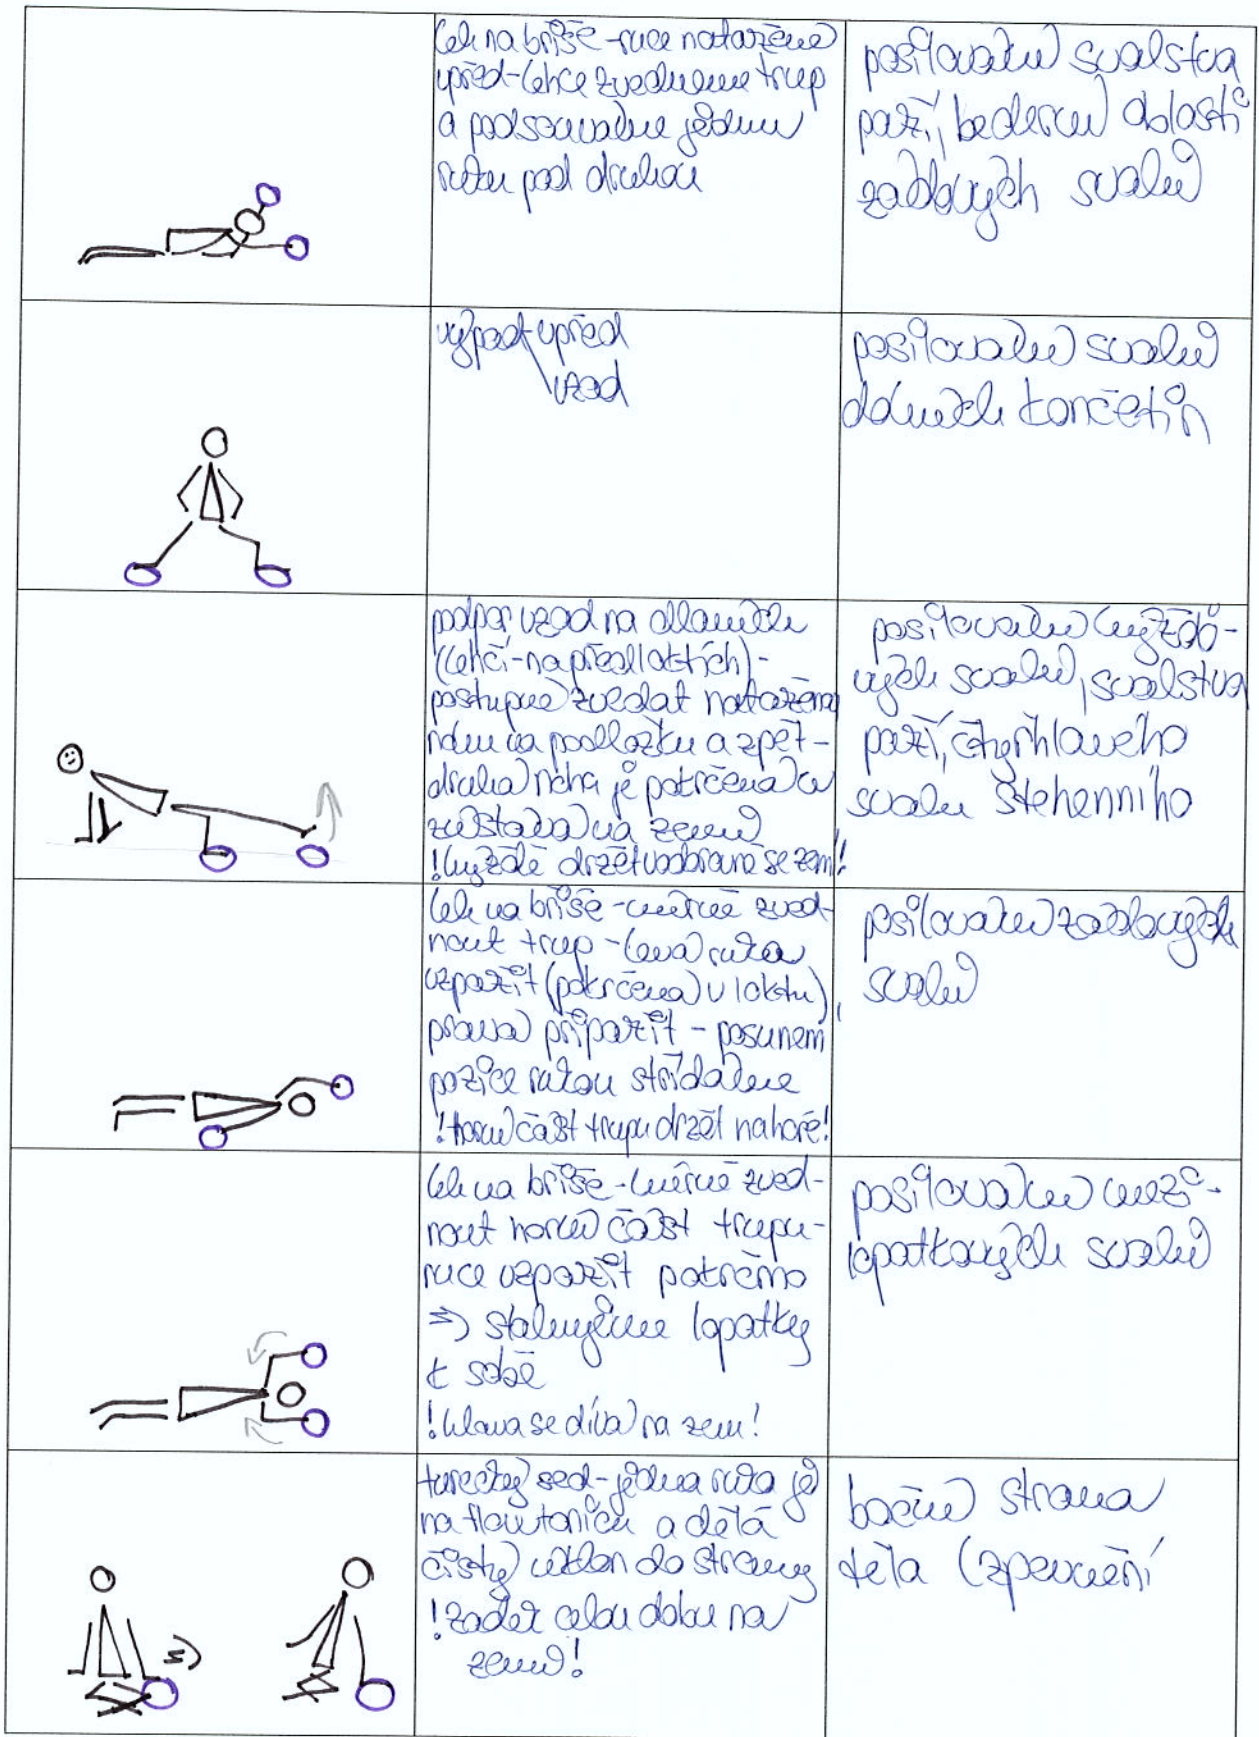 leh na břiše - ruce natažené
vpřed - lehce zvedneme trup
a podsouváme jednu
ruku pod druhou
posilování svalstva
paží, bederní oblasti
zádových svalů
výpad vpřed
vzad
posilování svalů
dolních končetin
podpor vzad na dlaních
(lehčí - na předloktích) -
postupně zvedat nataženou
nohu na podložku a zpět -
druhá noha je pokrčená a
zůstává na zemi
! hýždě držet vodorovně se zemí !
posilování hýžďo-
vých svalů, svalstva
paží, čtyřhlavého
svalu stehenního
leh na břiše - mírně zved-
nout trup - levá ruka
vzpažit (pokrčená v loktu),
pravá připažit - posunem
pozice rukou střídáme
! horní část trupu držet nahoře!
posilování zádových
svalů
leh na břiše - mírně zved-
nout horní část trupu -
ruce vzpažit pokrčmo
=> stahujeme lopatky
k sobě
! hlava se dívá na zem!
posilování mezi-
lopatkových svalů
turecký sed - jedna ruka je
na flowtonicu a dělá
čistý úklon do strany
! zadek celou dobu na
zemi!
boční strana
těla (zpevnění
=>